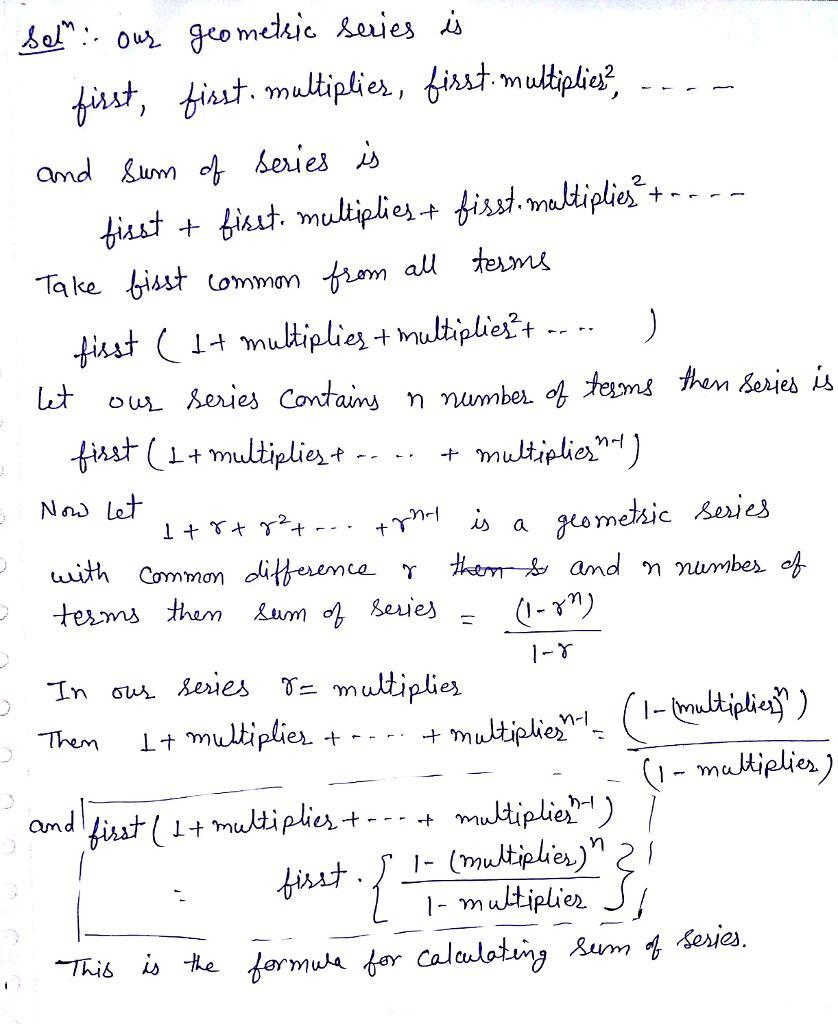 Solⁿ:- our geometric series is
first, first. multiplier, first. multiplier², ----
and sum of series is
first + first. multiplier + first. multiplier² + ----
Take first common from all terms
first ( 1+ multiplier + multiplier² + -- .. )
let our series contains n number of terms then series is
first ( 1+ multiplier + -- .. + multiplierⁿ⁻¹ )
Now let 1 + r + r² + --- + rⁿ⁻¹ is a geometric series
with common difference r ~~then s~~ and n number of
terms then sum of series = (1-rⁿ) / 1-r
In our series r = multiplier
Then 1+ multiplier + ---- + multiplierⁿ⁻¹ = (1-(multiplier)ⁿ) / (1- multiplier)
and first ( 1+ multiplier + --- + multiplierⁿ⁻¹ )
= first . { 1- (multiplier)ⁿ / 1- multiplier }
This is the formula for calculating sum of series.